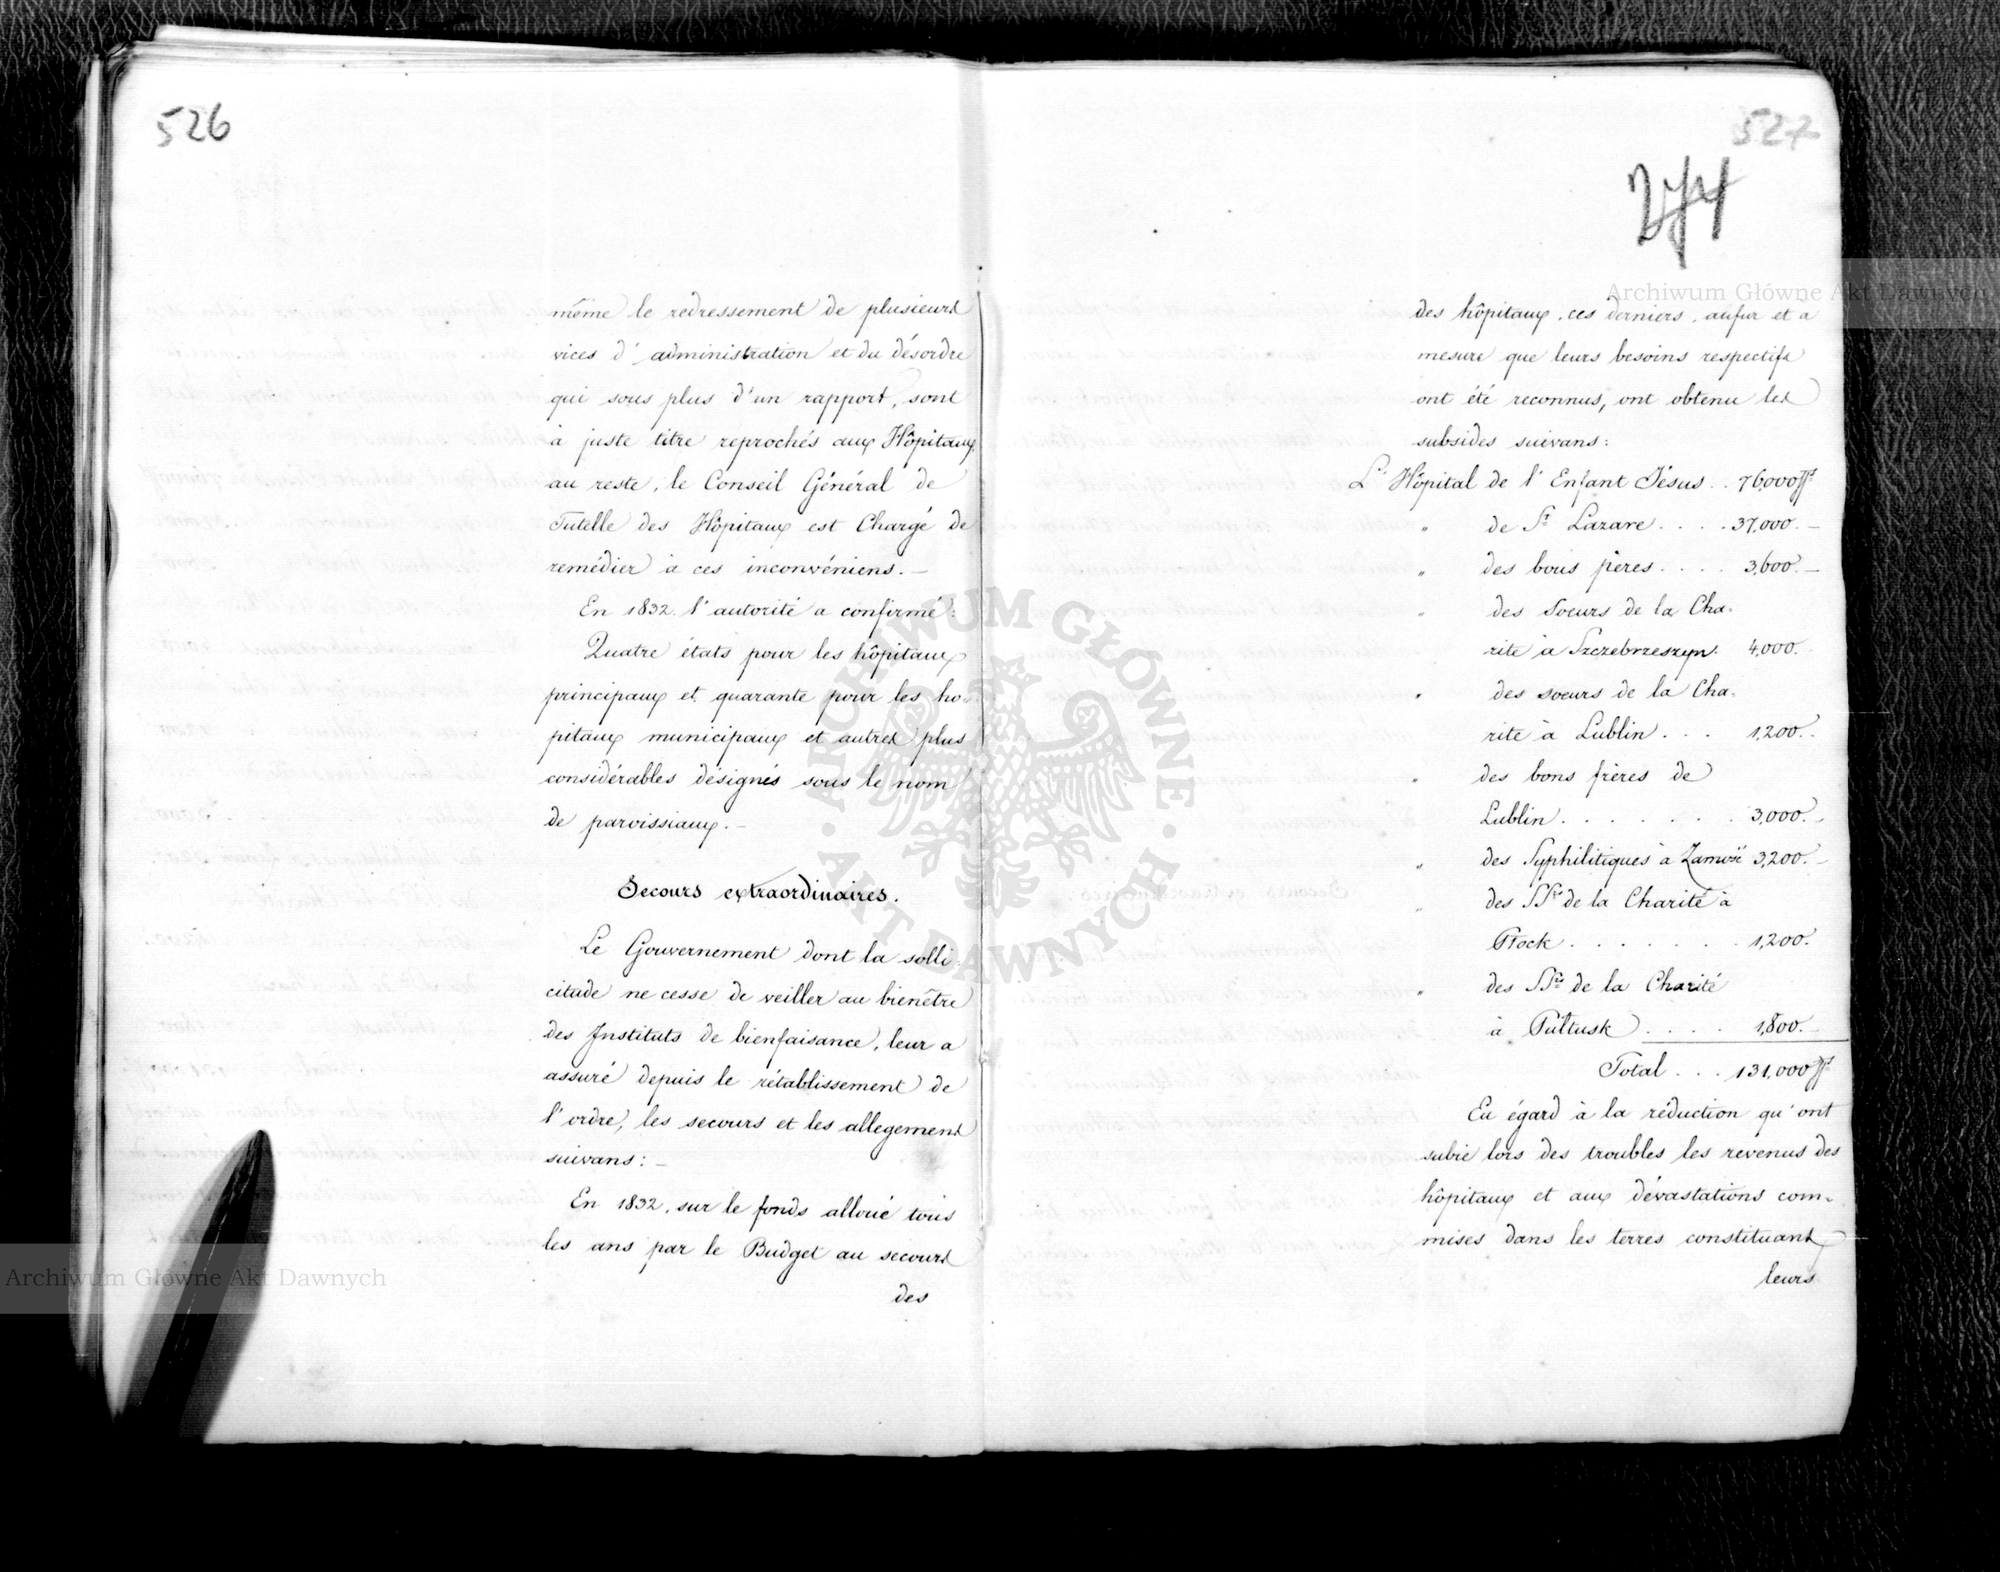 526
même le redressement de plusieurs
vices d'administration et du désordre
qui sous plus d'un rapport, sont
à juste titre reprochés aux Hôpitaux,
au reste, le Conseil Général de
Tutelle des Hôpitaux est Chargé de
remédier à ces inconvéniens. –
En 1832. l'autorité a confirmé:
Quatre états pour les hôpitaux
principaux et quarante pour les ho-
pitaux municipaux et autres plus
considérables désignés sous le nom
de paroissiaux. –
Secours extraordinaires.
Le Gouvernement dont la solli-
citude ne cesse de veiller au bienêtre
des Instituts de bienfaisance, leur a
assuré depuis le rétablissement de
l'ordre, les secours et les allegemens
suivans: –
En 1832, sur le fonds alloué tous
les ans par le Budget au secours
des
527
274
des hôpitaux, ces derniers, aufur et a
mesure que leurs besoins respectifs
ont été reconnus, ont obtenu les
subsides suivans:
L'Hôpital de l'Enfant Jésus . . 76,000 ff
" de St Lazare . . . . 37,000. –
" des bons pères . . . . 3,600. –
" des Soeurs de la Cha-
rite à Szczebrzeszyn. 4,000. –
" des soeurs de la Cha-
rite à Lublin . . . 1,200. –
" des bons frères de
Lublin . . . . . . . 3,000. –
" des Syphilitiques à Zamość 3,200. –
" des SSrs de la Charité à
Płock . . . . . . . 1,200.
" des SSrs de la Charité
à Pułtusk . . . . 1,800. –
Total . . . 131,000 ff
Eu égard à la réduction qu'ont
subie lors des troubles les revenus des
hôpitaux et aux dévastations com-
mises dans les terres constituant
leurs
Archiwum Główne Akt Dawnych
Archiwum Główne Akt Dawnych
ARCHIWUM GŁÓWNE · AKT DAWNYCH ·